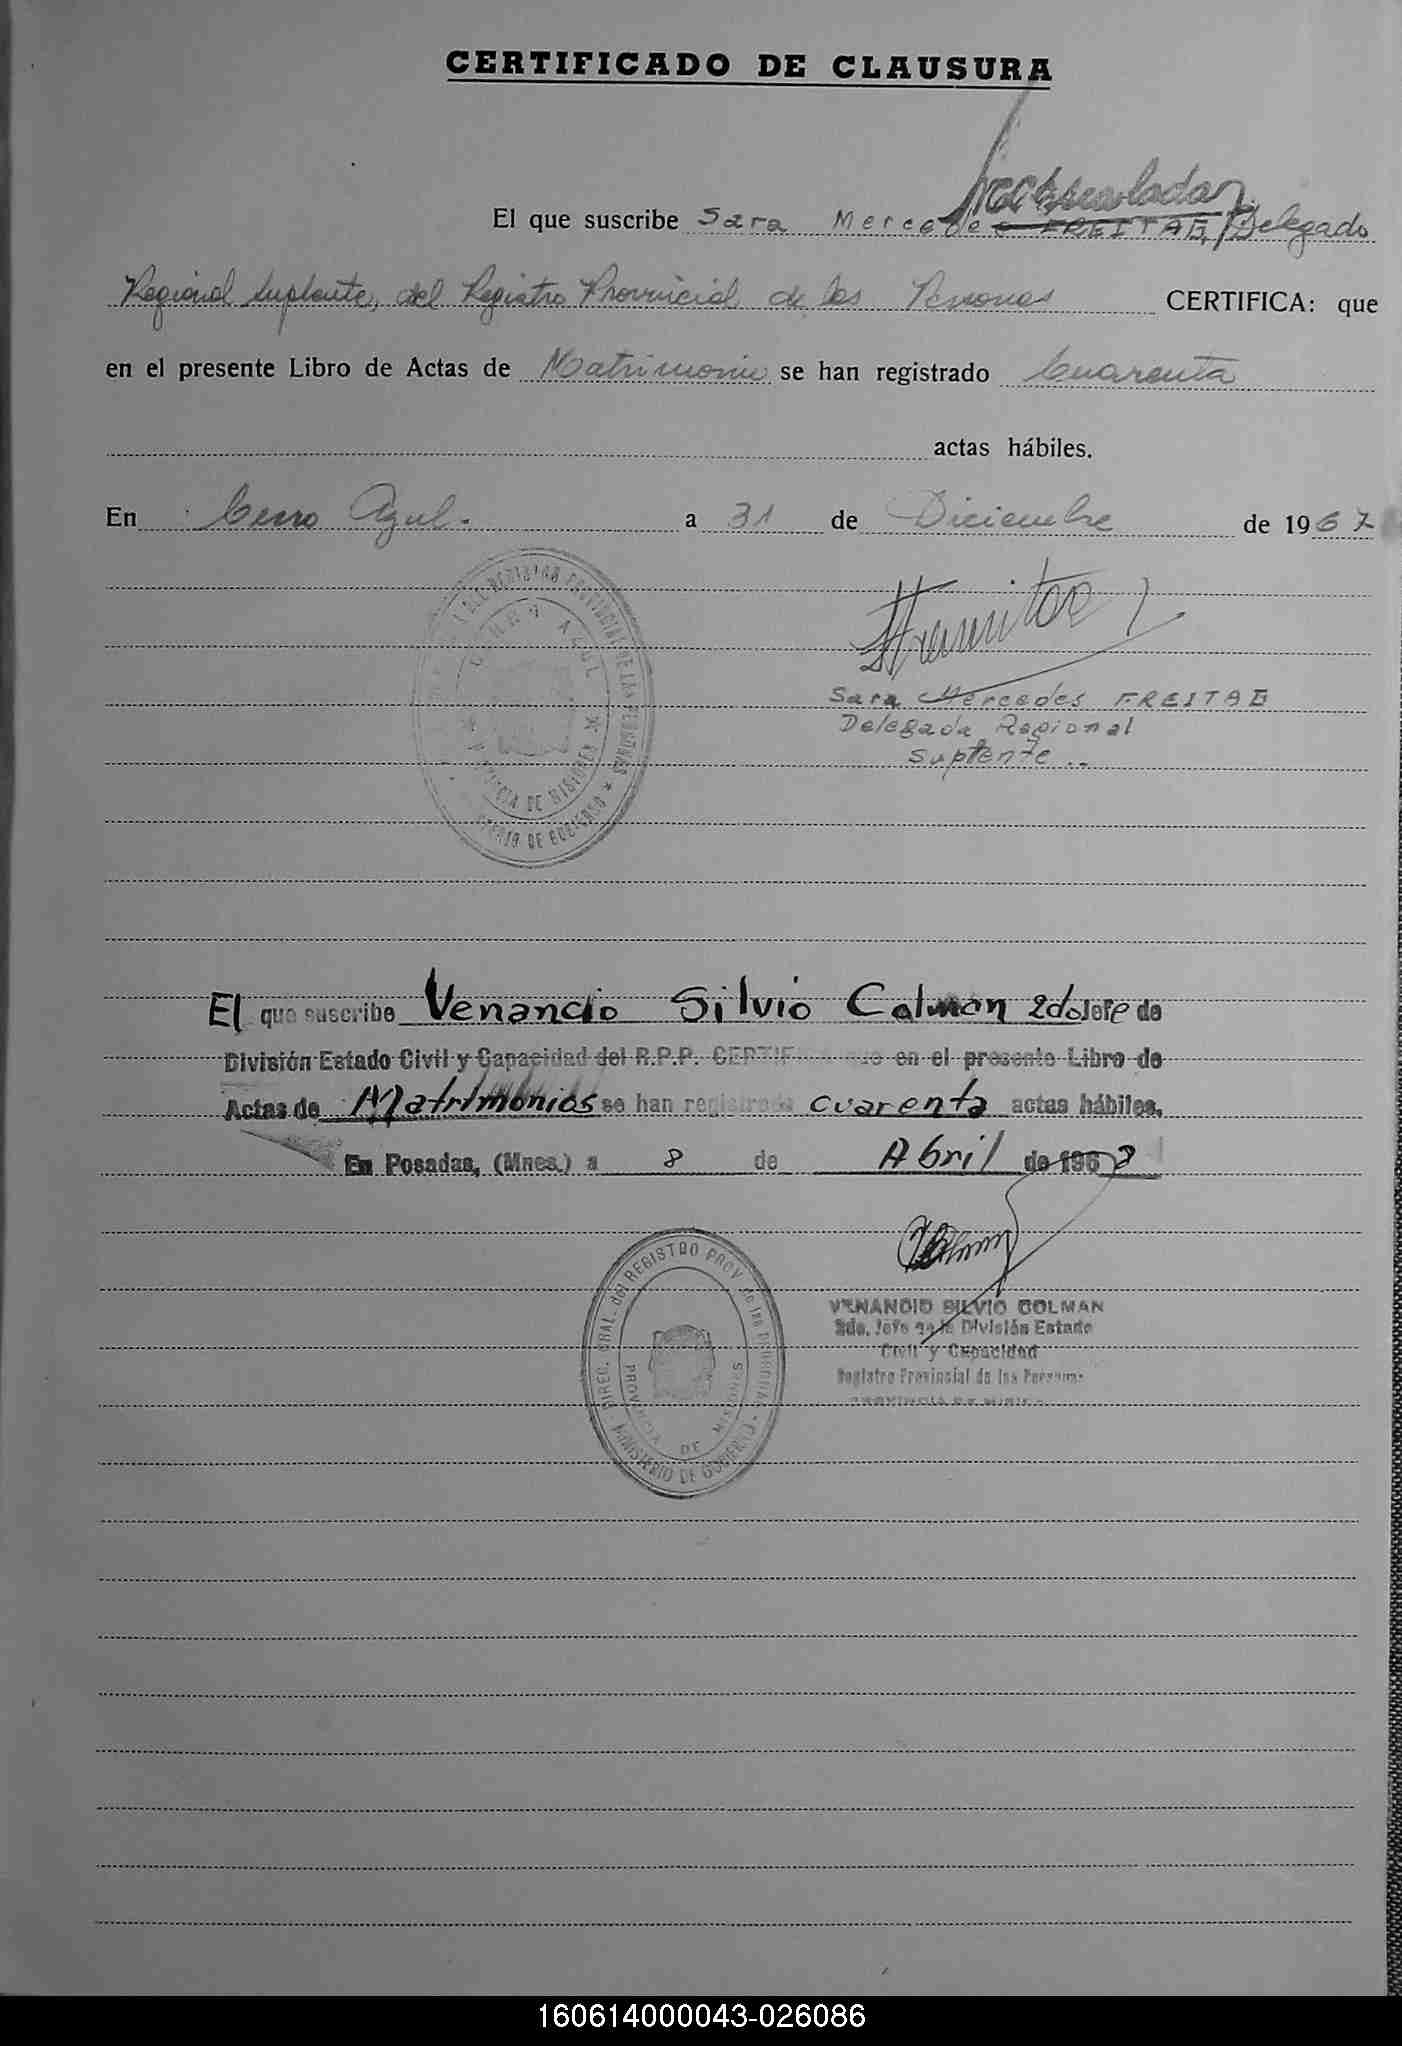 CERTIFICADO DE CLAUSURA
El que suscribe Sara Mercedes FREITAG, Delegado
Regional Suplente, del Registro Provincial de las Personas CERTIFICA: que
en el presente Libro de Actas de Matrimonio se han registrado Cuarenta
actas hábiles.
En Cerro Azul. a 31 de Diciembre de 1967
DEL REGISTRO PROVINCIAL DE LAS PERSONAS
CERRO AZUL
PROVINCIA DE MISIONES
MINISTERIO DE GOBIERNO
Sara Mercedes FREITAG
Delegada Regional
Suplente..
El que suscribe Venancio Silvio Colman 2do Jefe de
División Estado Civil y Capacidad del R.P.P. CERTIFICA que en el presente Libro de
Actas de Matrimonios se han registrado cuarenta actas hábiles.
En Posadas, (Mnes.) a 8 de Abril de 1968
DIREC. GRAL. del REGISTRO PROV. de las PERSONAS
PROVINCIA DE MISIONES
MINISTERIO DE GOBIERNO
VENANCIO SILVIO COLMAN
2do. Jefe de la División Estado
Civil y Capacidad
Registro Provincial de las Personas
PROVINCIA DE MISIONES
160614000043-026086